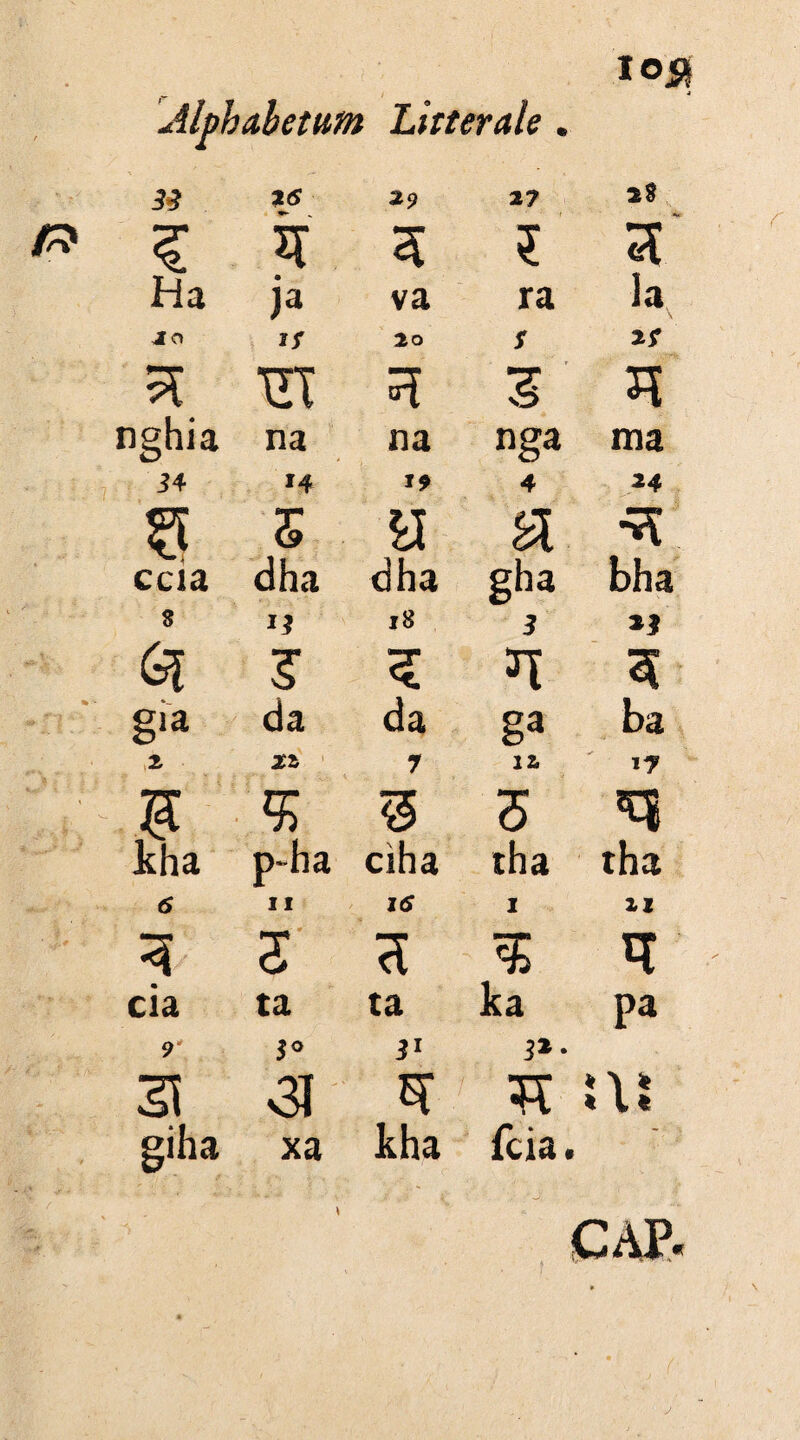 109
Alphabetum Litterale .
33 26 29 27 28
ह य व र ल
Ha ja va ra la
10 15 20 5 25
ञ ण न ङ म
nghia na na nga ma
34 14 19 4 24
ढ ध घ भ
ccia dha dha gha bha
8 13 18 3 23
ज ड द ग ब
gia da da ga ba
2 22 7 12 17
ख फ छ ठ थ
kha p-ha ciha tha tha
6 11 16 1 21
च ट त क प
cia ta ta ka pa
9 30 31 32.
झ श ष स
giha xa kha ſcia.
CAP.